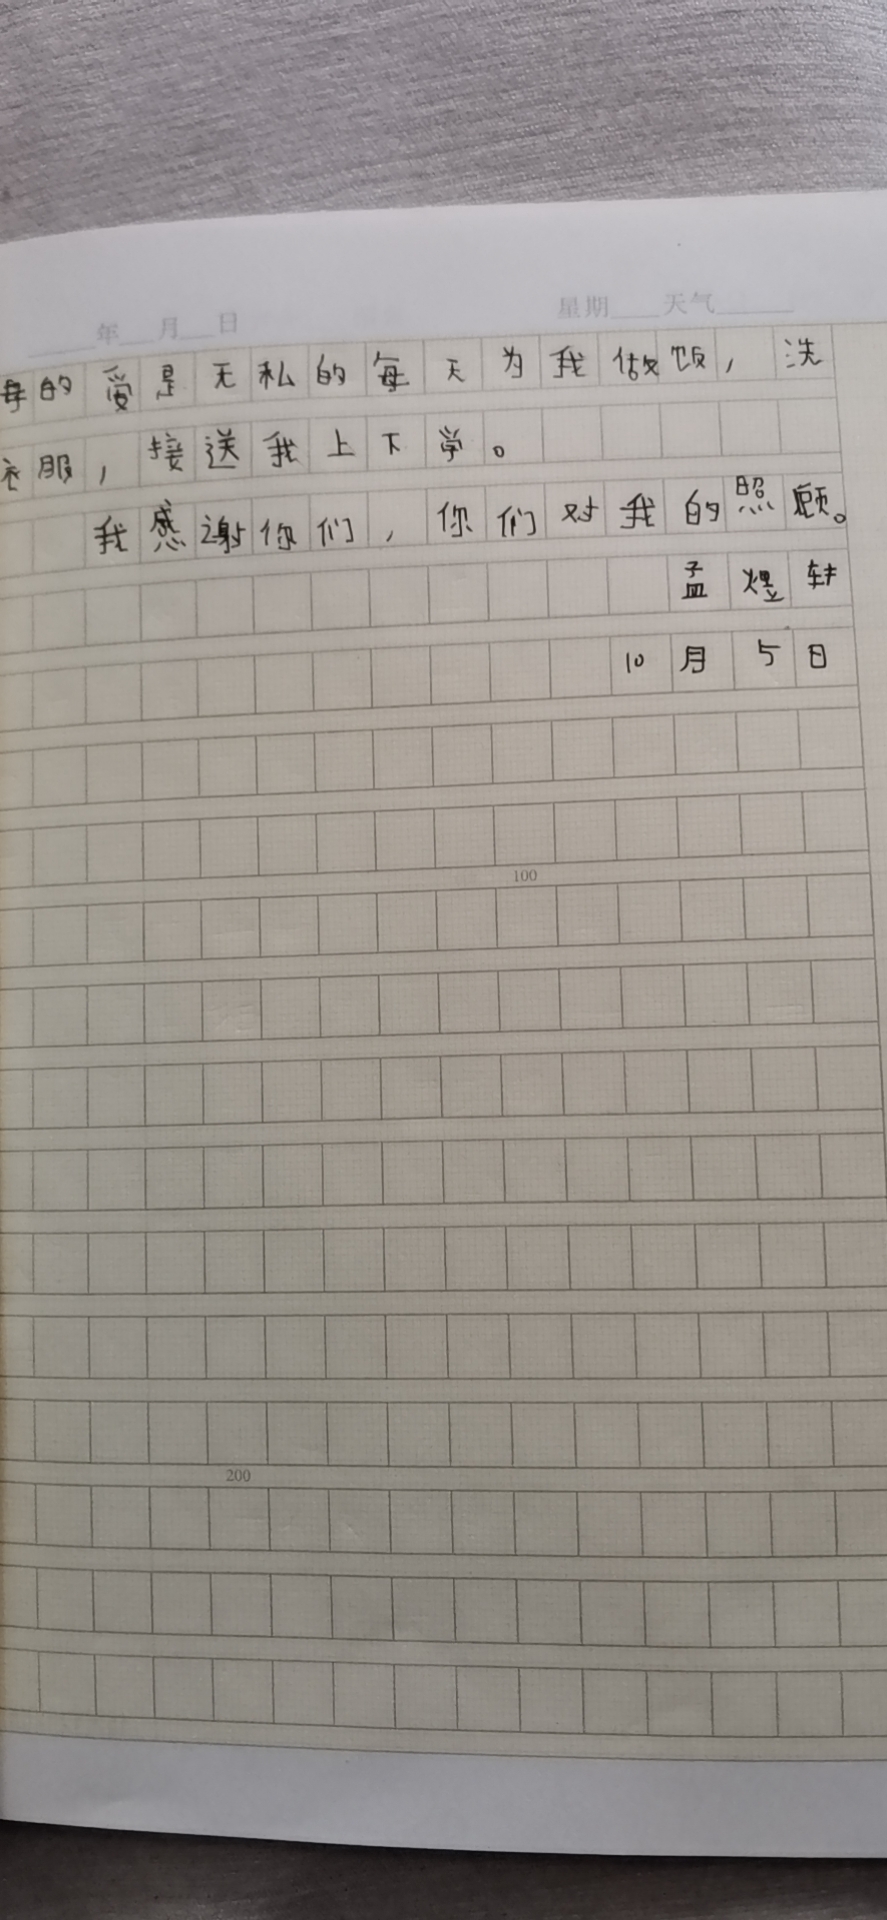 年 月 日 星期 天气
母的爱是无私的每天为我做饭，洗
衣服，接送我上下学。
我感谢你们，你们对我的照顾。
孟煜轩
10月5日
100
200